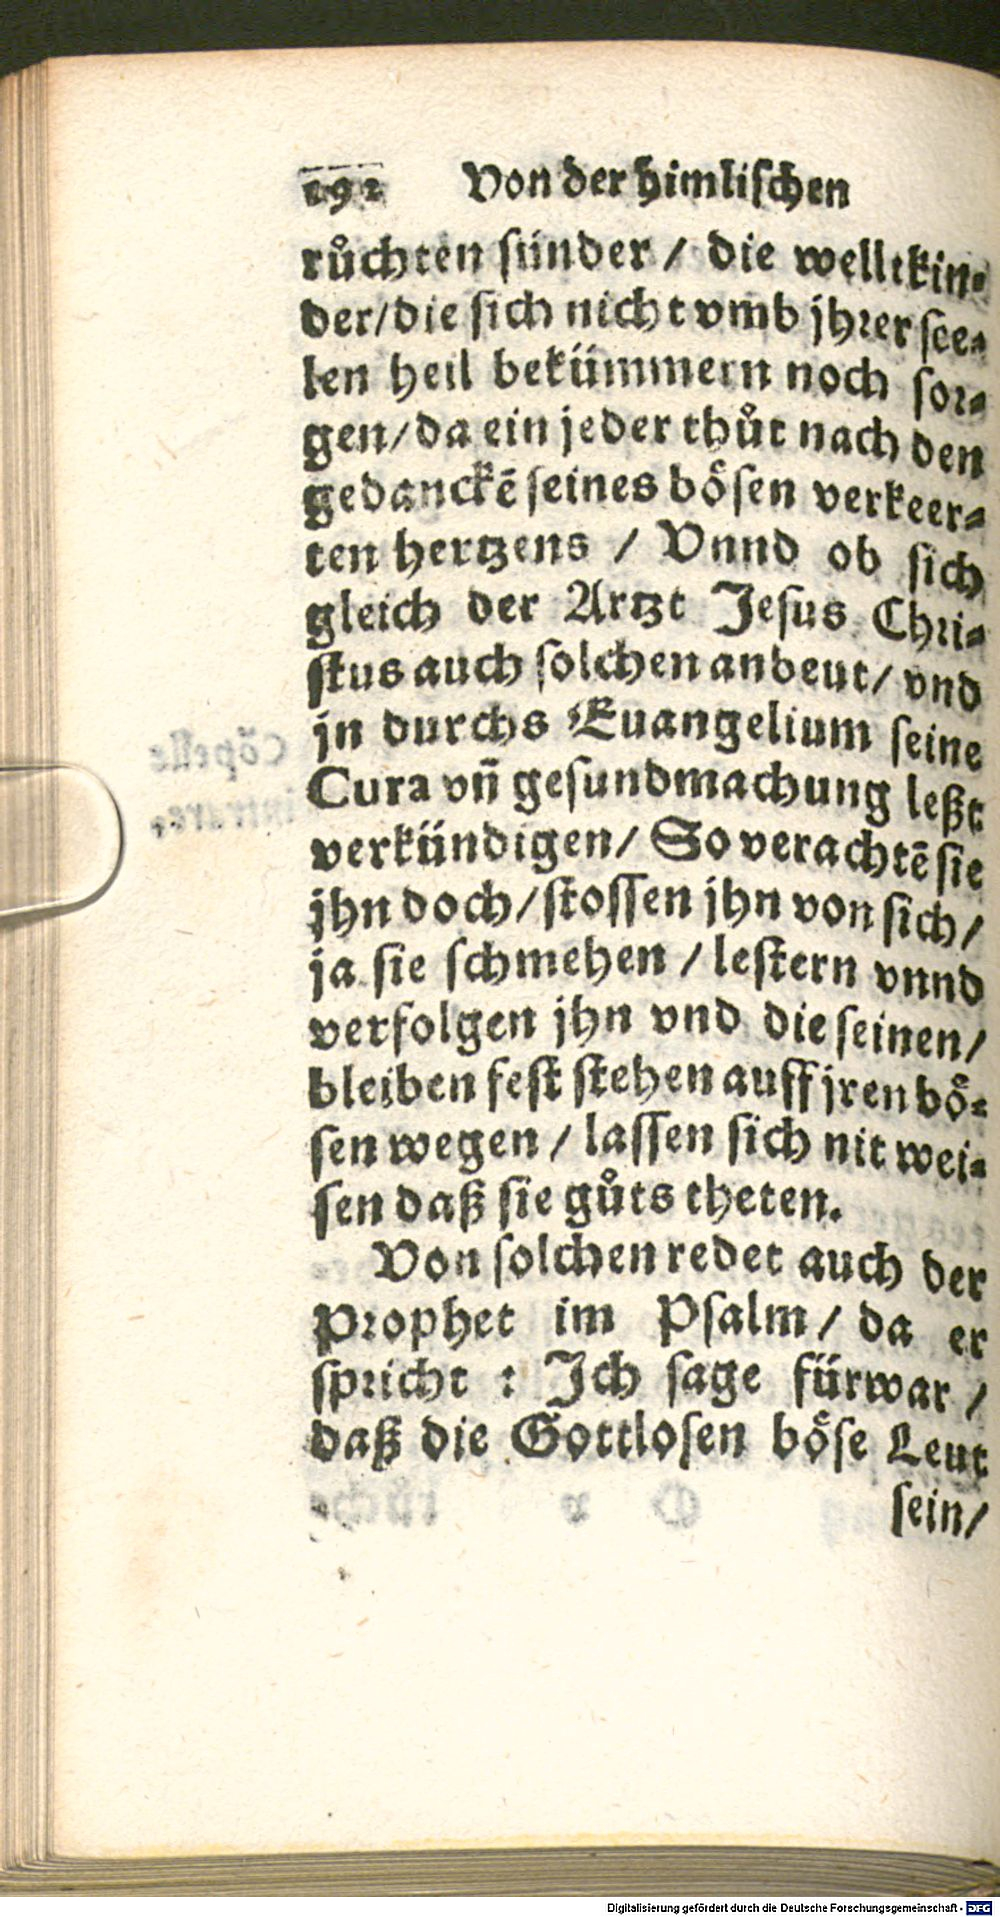 192 Von der himlischen
růchten sünder / die welltkin-
der/die sich nicht vmb jhrer see-
len heil bekümmern noch sor-
gen/da ein jeder thůt nach den
gedanckē seines bösen verkeer-
ten hertzens / Vnnd ob sich
gleich der Artzt Jesus Chri-
stus auch solchen anbeut/ vnd
jn durchs Euangelium seine
Cura vn̄ gesundmachung leßt
verkündigen/ So verachtē sie
jhn doch/stossen jhn von sich/
ja sie schmehen / lestern vnnd
verfolgen jhn vnd die seinen/
bleiben fest stehen auff jren bö-
sen wegen / lassen sich nit wei-
sen daß sie gůts theten.
Von solchen redet auch der
Prophet im Psalm/ da er
spricht : Ich sage fürwar /
daß die Gottlosen böse Leut
sein/
Digitalisierung gefördert durch die Deutsche Forschungsgemeinschaft - DFG